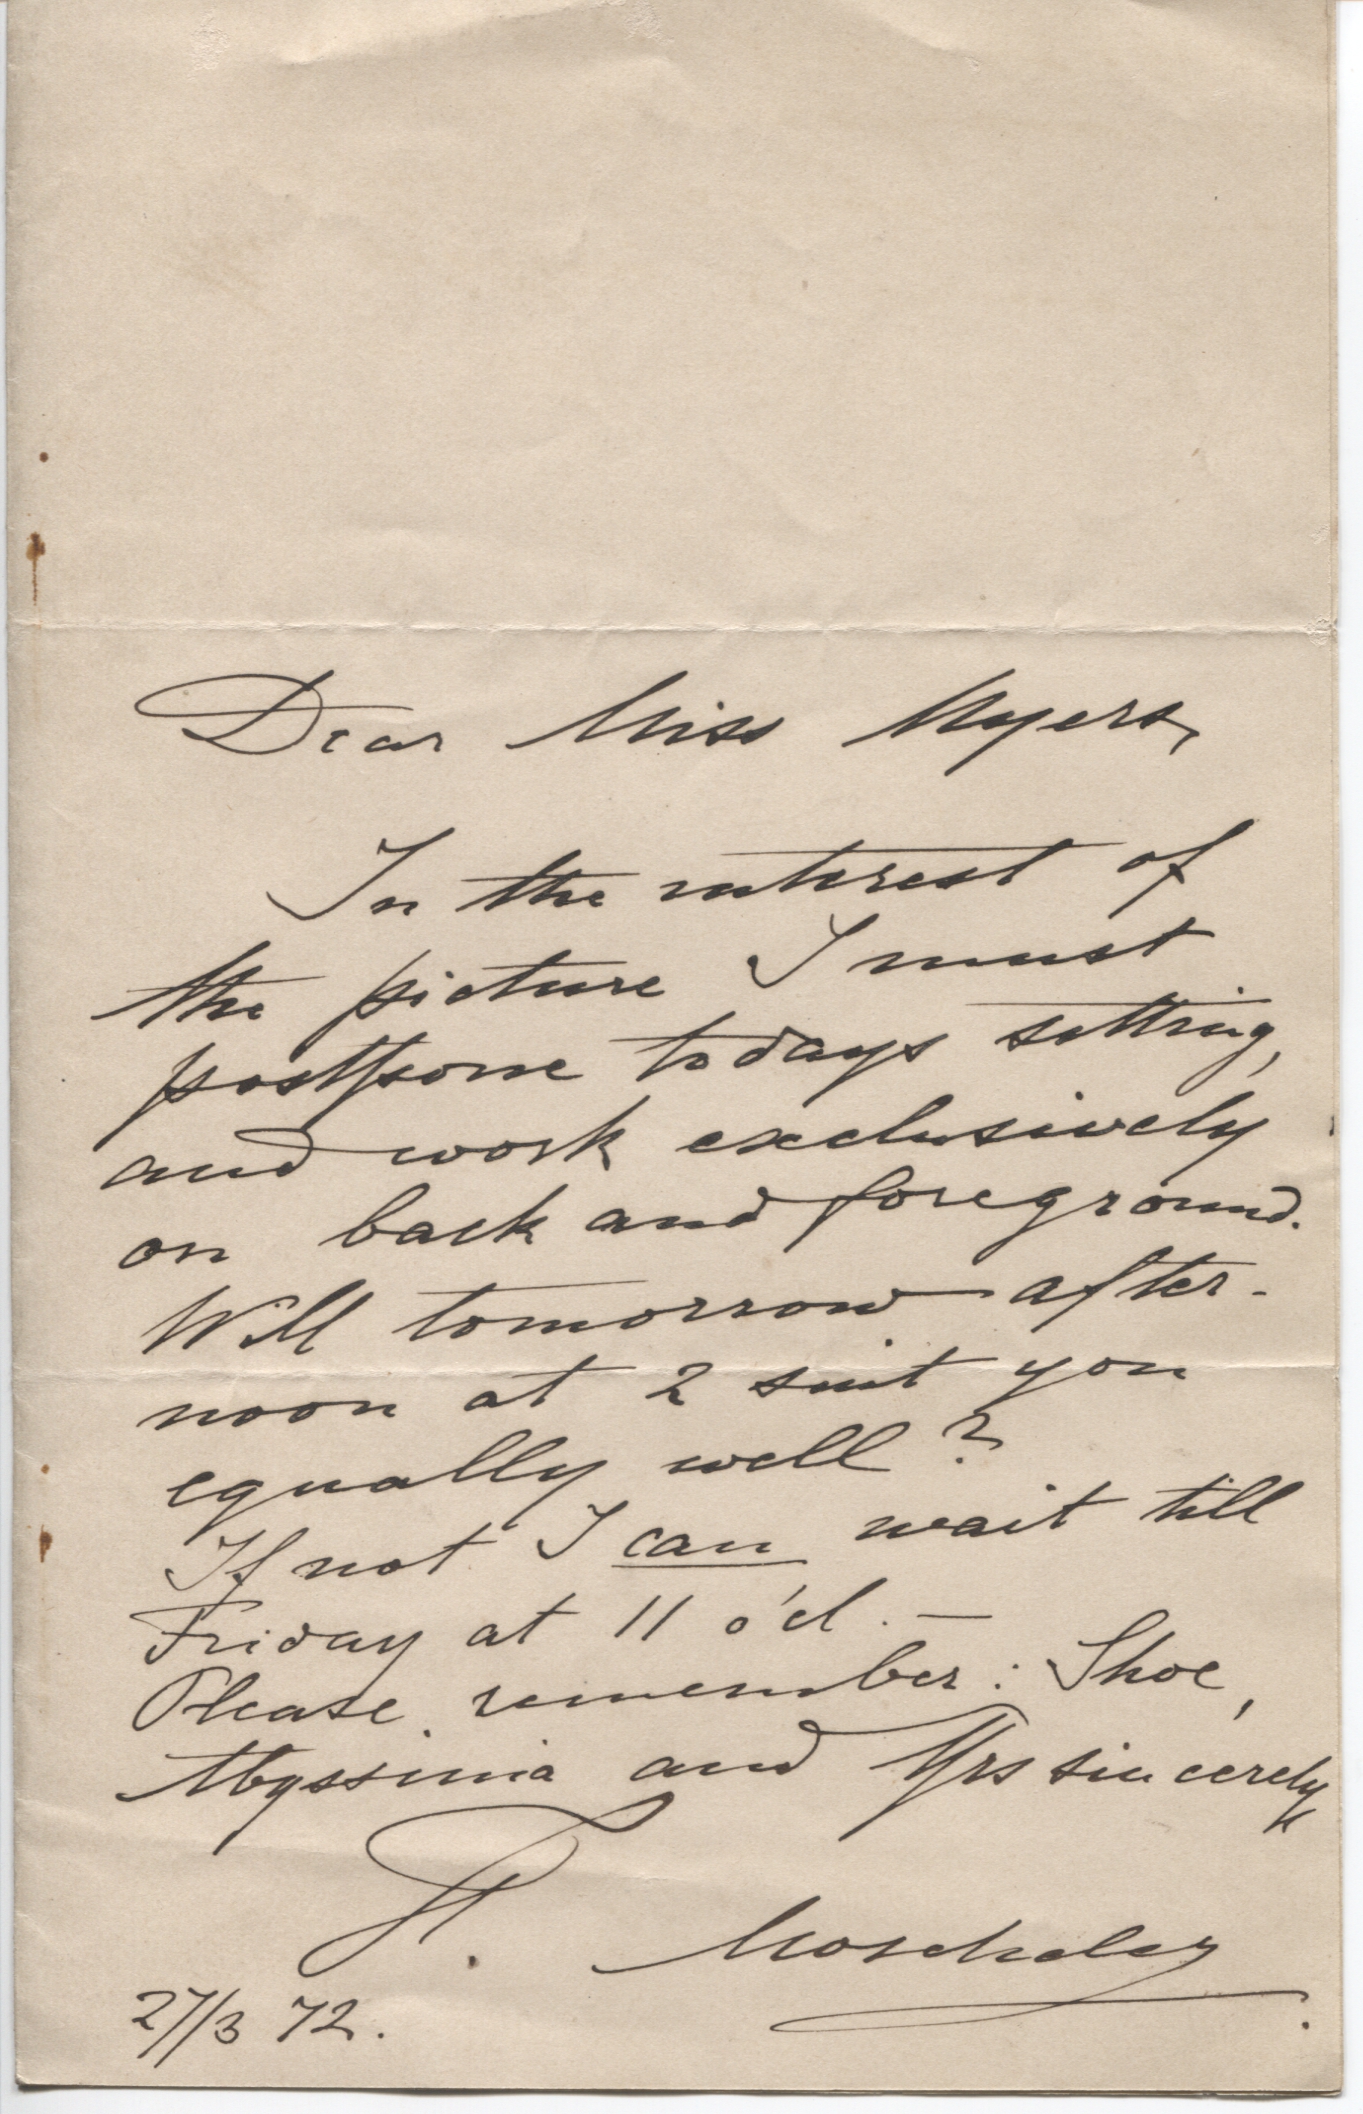 Dear Miss Myers,
In the interest of
the picture I must
postpone todays sitting,
and work exclusively
on back and foreground.
Will tomorrow after-
noon at 2 suit you
equally well?
If not I can wait till
Friday at 11 o'cl. —
Please remember: Shoe,
Abyssinia and Yrs sincerely
F. Moscheles
27/3 72.